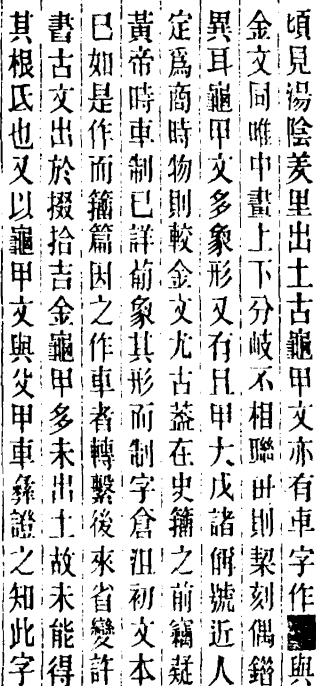 頃見湯陰羑里出土古龜甲文亦有車字作與
金文同唯中畫上下分岐不相聯毌則契刻偶錯
異耳龜甲文多象形又有且甲大戊諸偁號近人
定爲商時物則較金文尤古葢在史籒之前竊疑
黃帝時車制已詳葡象其形而制字倉沮初文本
已如是作而籒篇因之作車者轉繫後來省變許
書古文出於掇拾吉金龜甲多未出土故未能得
其根氐也又以龜甲文與父甲車彝證之知此字